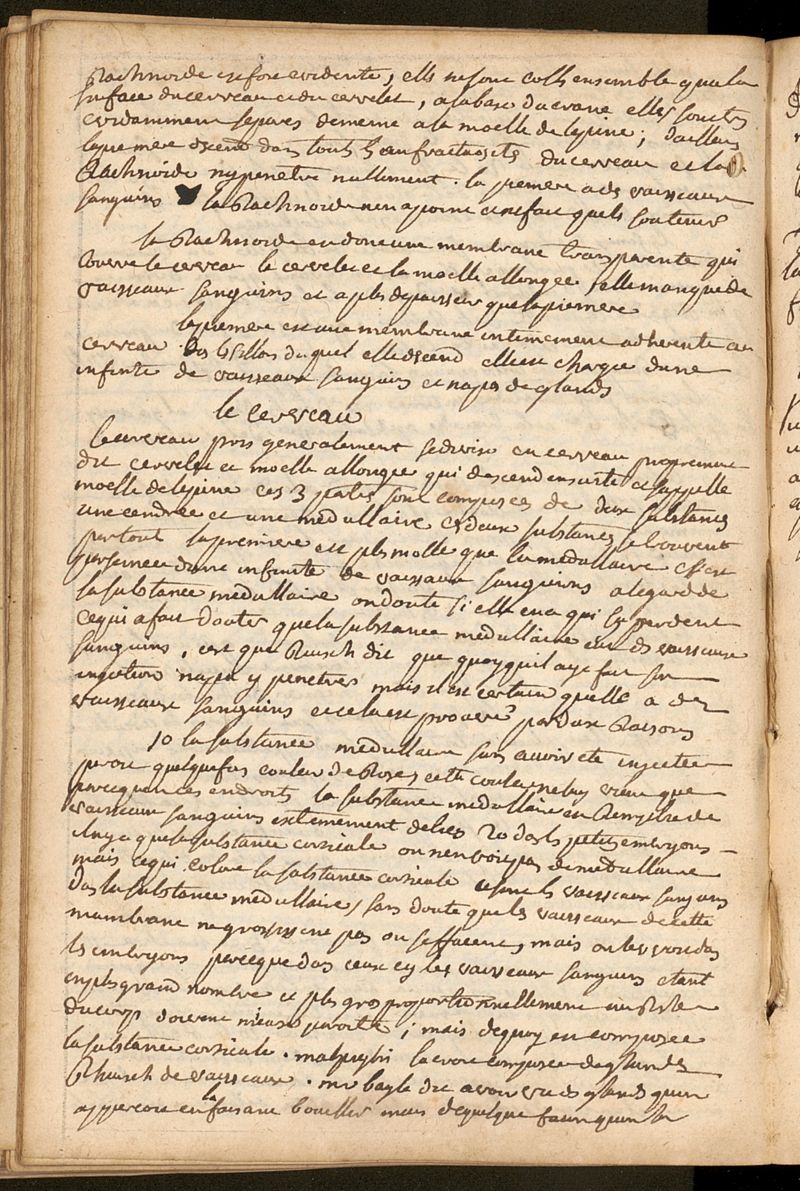 Rachnoide est fort evidente, elles ne sont colls ensemble qua la
surface du cerveau et du cervelet, a la base du crane elles sont tres
evidamment separes de meme a la moelle de lepine; dailleurs
la piemere descend dans touts les enfractuosités du cerveau et la
Rachnoide ny penetre nullement. la piemere a des vaisseaux
sanguins la Rachnoide nen a point et ne fait quels soutenir
la Rachnoide est donc une membrane transparente qui
couvre le cerveau le cervelet et la moelle allongée elle manque de
vaisseaux sanguins et a plus depaisseur que la piemere
la piemere est une membrane intimement adherente au
cerveau dans les sillons du quel elle descend elle est chargée dune
infinité de vaisseaux sanguins et na pas de glands
le cerveau
le cerveau pris generalement se divise en cerveau proprement
dit cervelet et moelle allongée qui descend ensuite et sappelle
moelle de lepine ces 3 partes sont composées de deux substances
une cendrée et une medullaire ces deux substances se trouvent
par tout la premiere est plus molle que la medullaire elle est
parsemée dune infinité de vaissaux sanguins a legard de
la substance medullaire on doute si elle en a qui la perdent
ce qui a fait douter que la substance medullaire eut des vaisseaux
sanguins, cest que Ruisch dit que quoyquil aye fait son
injection na pu y penetrer mais il est certain quelle a des
vaisseaux sanguins et cela est prouvé par deux Raisons
1o la substance medullaire sans avoir eté injectée
paroit quelquefois couleur de Roses cette couleur ne luy vient que
parcequen ces endroits la substance medullaire est Remplie de
vaisseaux sanguins extremement delies 2o dans les petits embryons
il ny a que la substance corticale on nen voit pas de medullaire
mais ce qui colore la substance corticale ce sont les vaisseaux sanguins
dans la substance medullaire, sans doute que les vaisseaux de cette
membrane ne grossissent pas ou seffacent, mais on les voit dans
les embryons parceque dans ceux cy les vaisseaux sanguins etant
en plus grand nombre et plus gros proportionnellement au Reste
du corps doivent mieux paroitre; mais dequoy est composée
la substance corticale. malpighi la croit composée de glandes
Rhuisch de vaisseaux. mr bayle dit avoir vu des glands quon
appercoit en faisant bouillir mais de quelque facon quon la